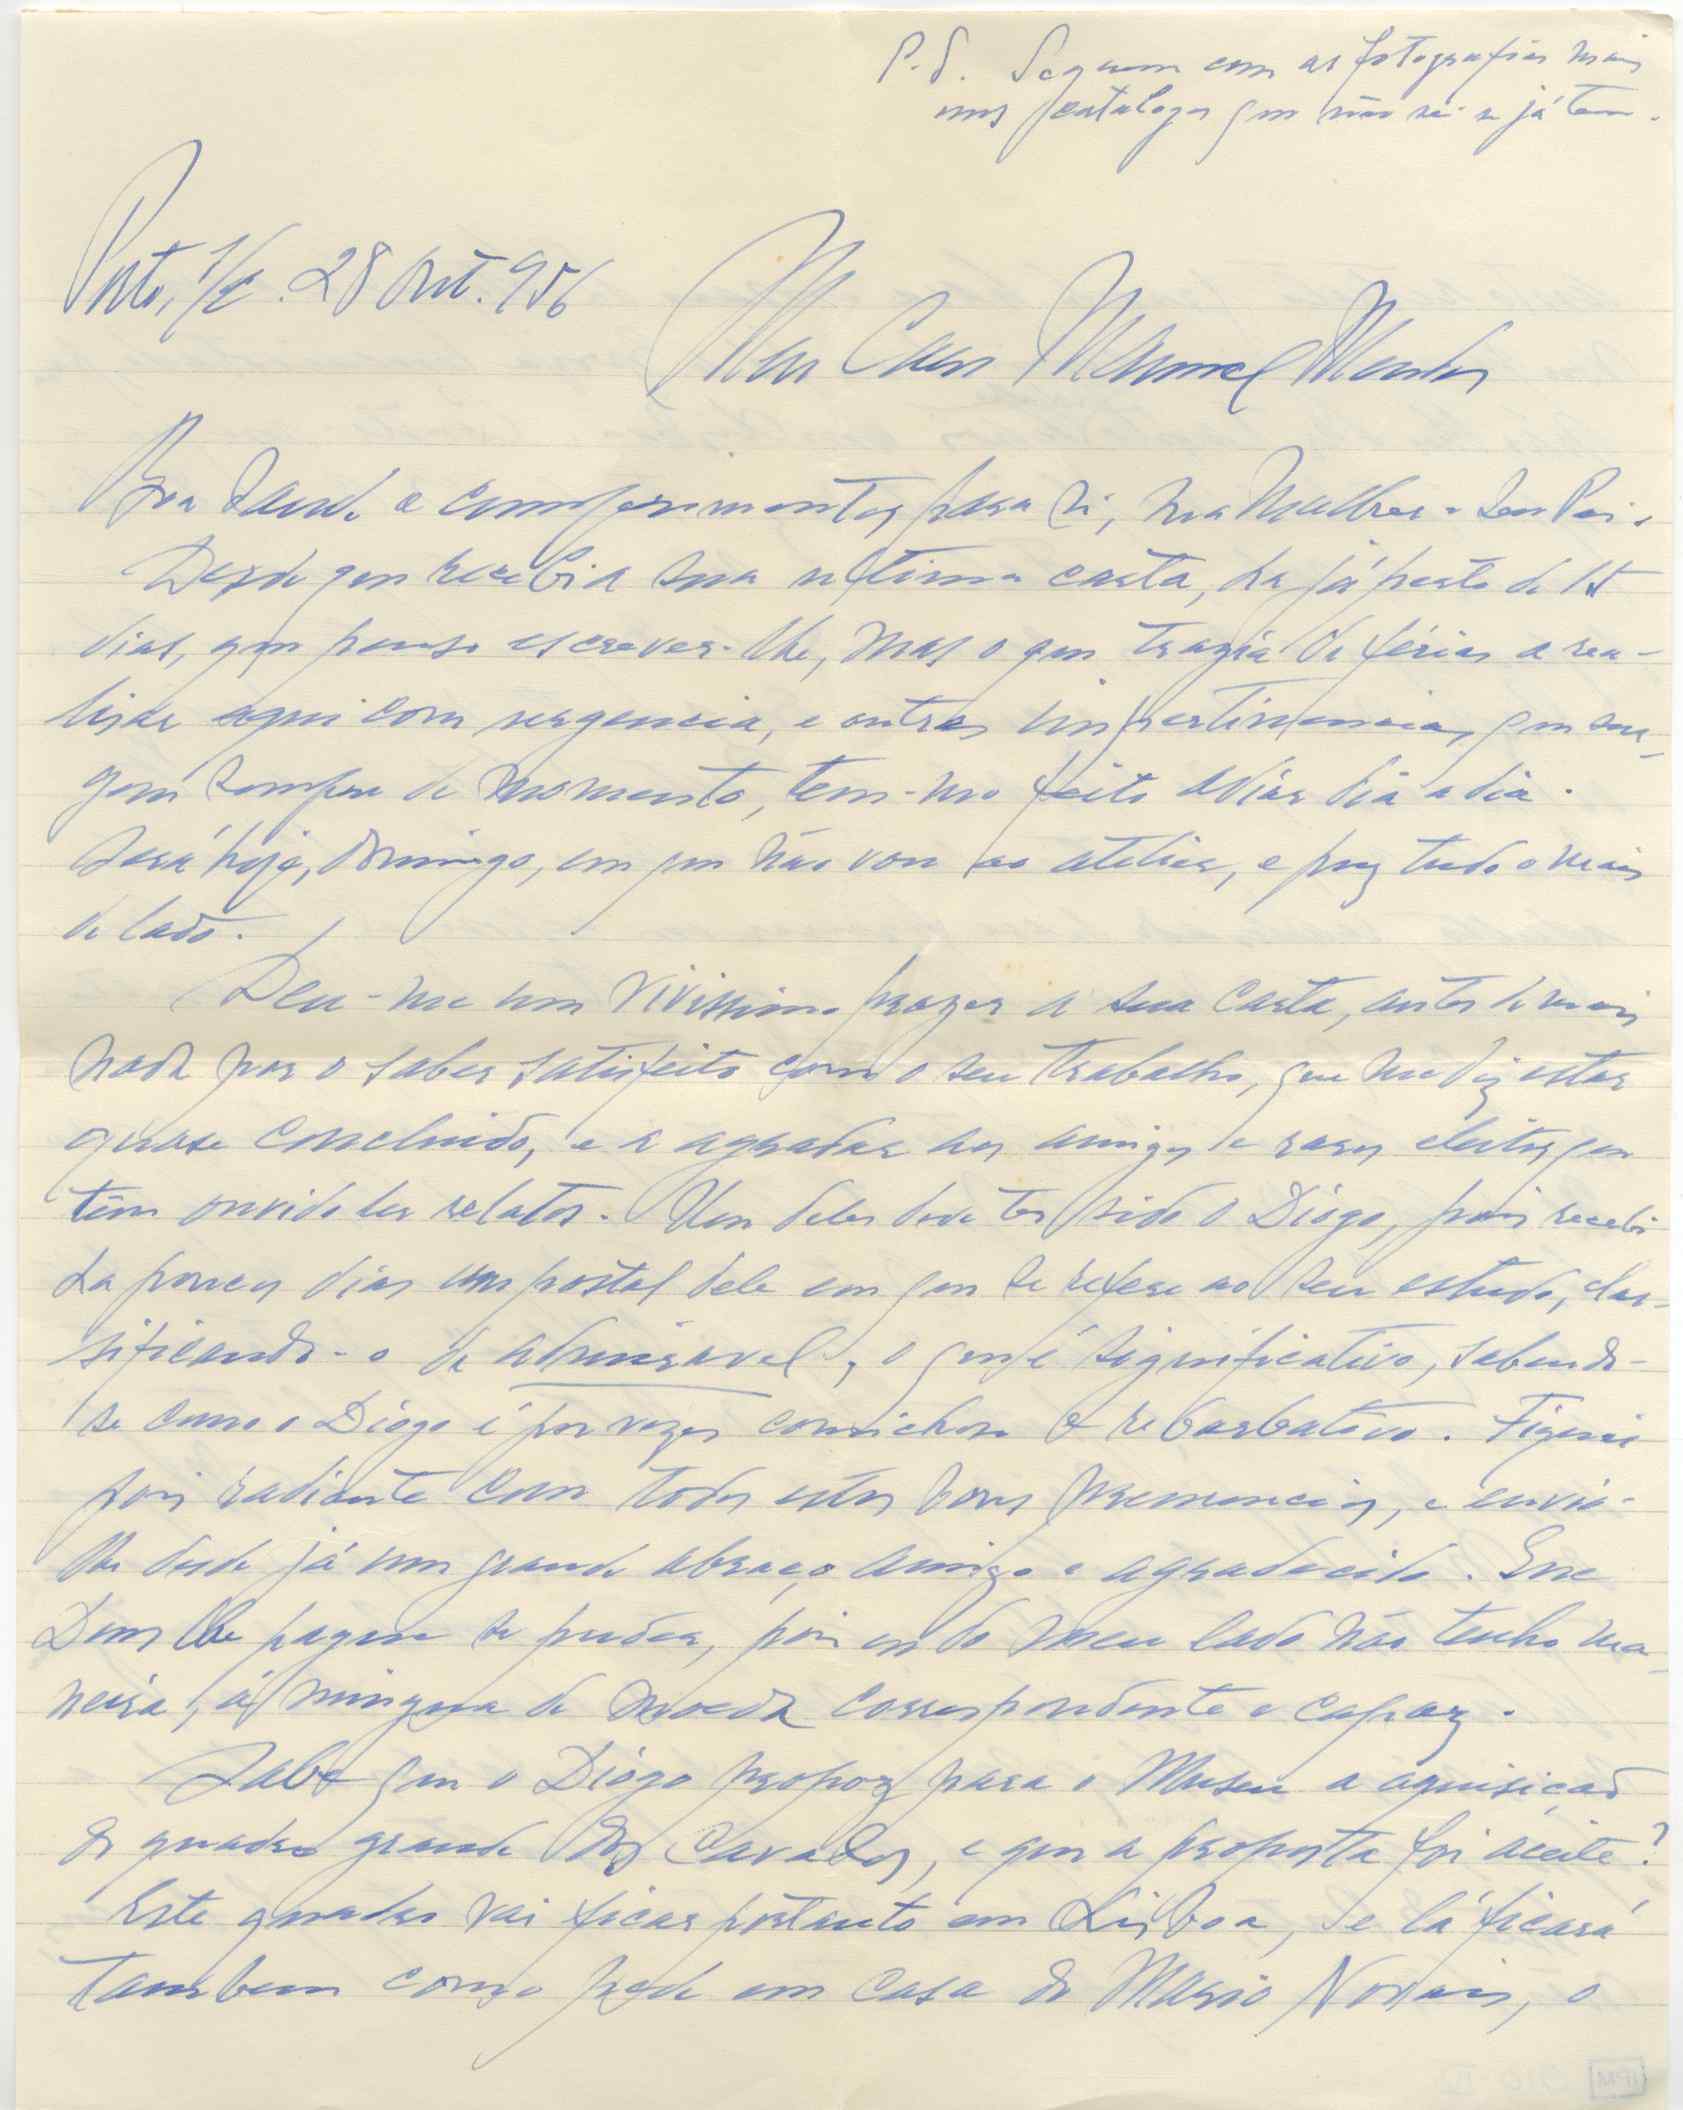 P.S. Seguem com as fotografias mais
uns catalogos que não sei se já tem.
Porto, s/c. 28 Out. 956
Meu Caro Manuel Mendes
Boa saude e comprimentos para si, sua Mulher e seu Pai.
Desde que recebi a sua ultima carta, ha já perto de 15
dias, que penso escrever-lhe, mas o que trazia de férias a rea-
lisar aqui com urgencia, e outras impertinencias, que sur-
gem sempre de momento, tem-me feito adiar dia a dia.
Será hoje, domingo, em que não vou ao atelier, e puz tudo o mais
de lado.
Deu-me um vivissimo prazer a sua carta, antes de mais
nada por o saber satisfeito com o seu trabalho, que me diz estar
quase concluido, e a agradar aos amigos e raros eleitos que
têm ouvido ler relatos. Um deles deve ter sido o Diógo, pois recebi
ha poucos dias um postal dele em que se refere ao seu estudo, clas-
sificando-o de admiravel, o que é significativo, sabendo-
se como o Diógo é por vezes e rebarbativo. Fiquei
pois radiante com todos estes bons prenuncios, e envio-
lhe desde já um grande abraço amigo e agradecido. Que
Deus lhe pague se puder, pois eu do meu lado não tenho ma-
neira, á mingua de moeda correspondente e capaz.
Sabe que o Diógo propoz para o Museu a aquisição
do quadro grande dos Cavalos, e que a proposta foi aceite?
Este quadro vai ficar portanto em Lisboa, e lá ficará
tambem como pede em casa do Mario Novais, o